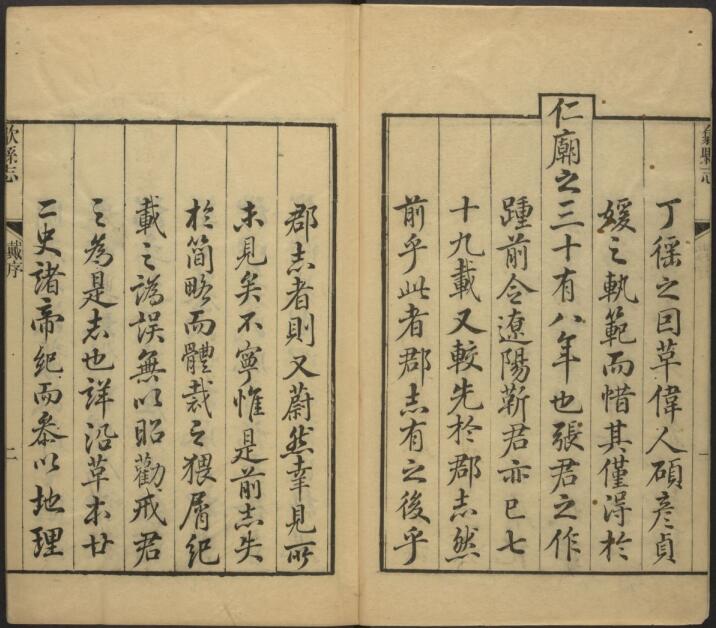 歙縣志
一
丁徭之囙革偉人碩彥貞
媛之軌範而惜其僅得於
仁廟之三十有八年也張君之作
踵前令遼陽靳君亦已七
十九載又較先於郡志然
前乎此者郡志有之後乎
郡志者則又蔚然幸見所
未見矣不寧惟是前志失
於簡略而體裁之猥屑紀
載之譌誤無以昭勸戒君
之為是志也詳沿革本廿
二史諸帝紀而叅以地理
歙縣志
戴序
二